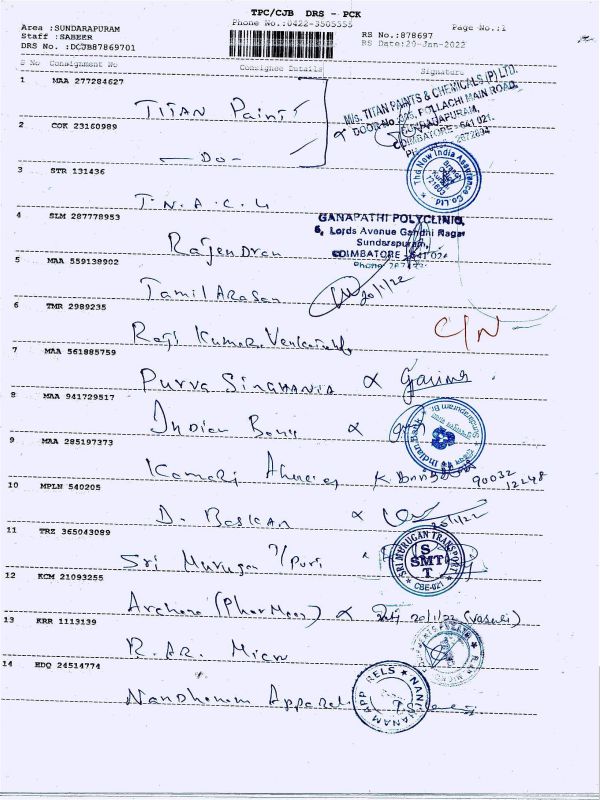 TPC/CJB DRS - PCK
Phone No.:0422-3505555
Page No.:1
Area :SUNDARAPURAM
Staff :SABEER
DRS No. :DCJB87869701
RS No.:878697
RS Date:20-Jan-2022
S No Consignment No Consignee Details Signature
1 MAA 277284627
TITAN Paints
M/s. TITAN PAINTS & CHEMICALS (P) LTD.
POLLACHI MAIN ROAD,
SUNDARAPURAM,
COIMBATORE - 641 021.
2 COK 23160989
— Do —
3 STR 131436
The New India Assurance Co Ltd
T. N. A. C. U
4 SLM 287778953
GANAPATHI POLYCLINIC,
6, Lords Avenue Gandhi Nagar
Sundarapuram,
COIMBATORE - 641 024
Rajendran
5 MAA 559138902
Tamil Arasan 20/1/22
6 TMR 2989235
C/N
Raj Kumar
7 MAA 561885759
Purva Singhania
8 MAA 941729517
Indian Bank
Indian Bank
9 MAA 285197373
90032
12248
10 MPLN 540205
D. Baskan
11 TRZ 365043089
Sri Murugan
SRI MURUGAN TRANSPORT
SMT
CBE-021
12 KCM 21093255
Archana (Pharmacy) 20/1/22 (Vasuki)
13 KRR 1113139
R. AR. Micro
14 HDQ 24514774
Nandhanam Apparels
NANDHANAM APPARELS